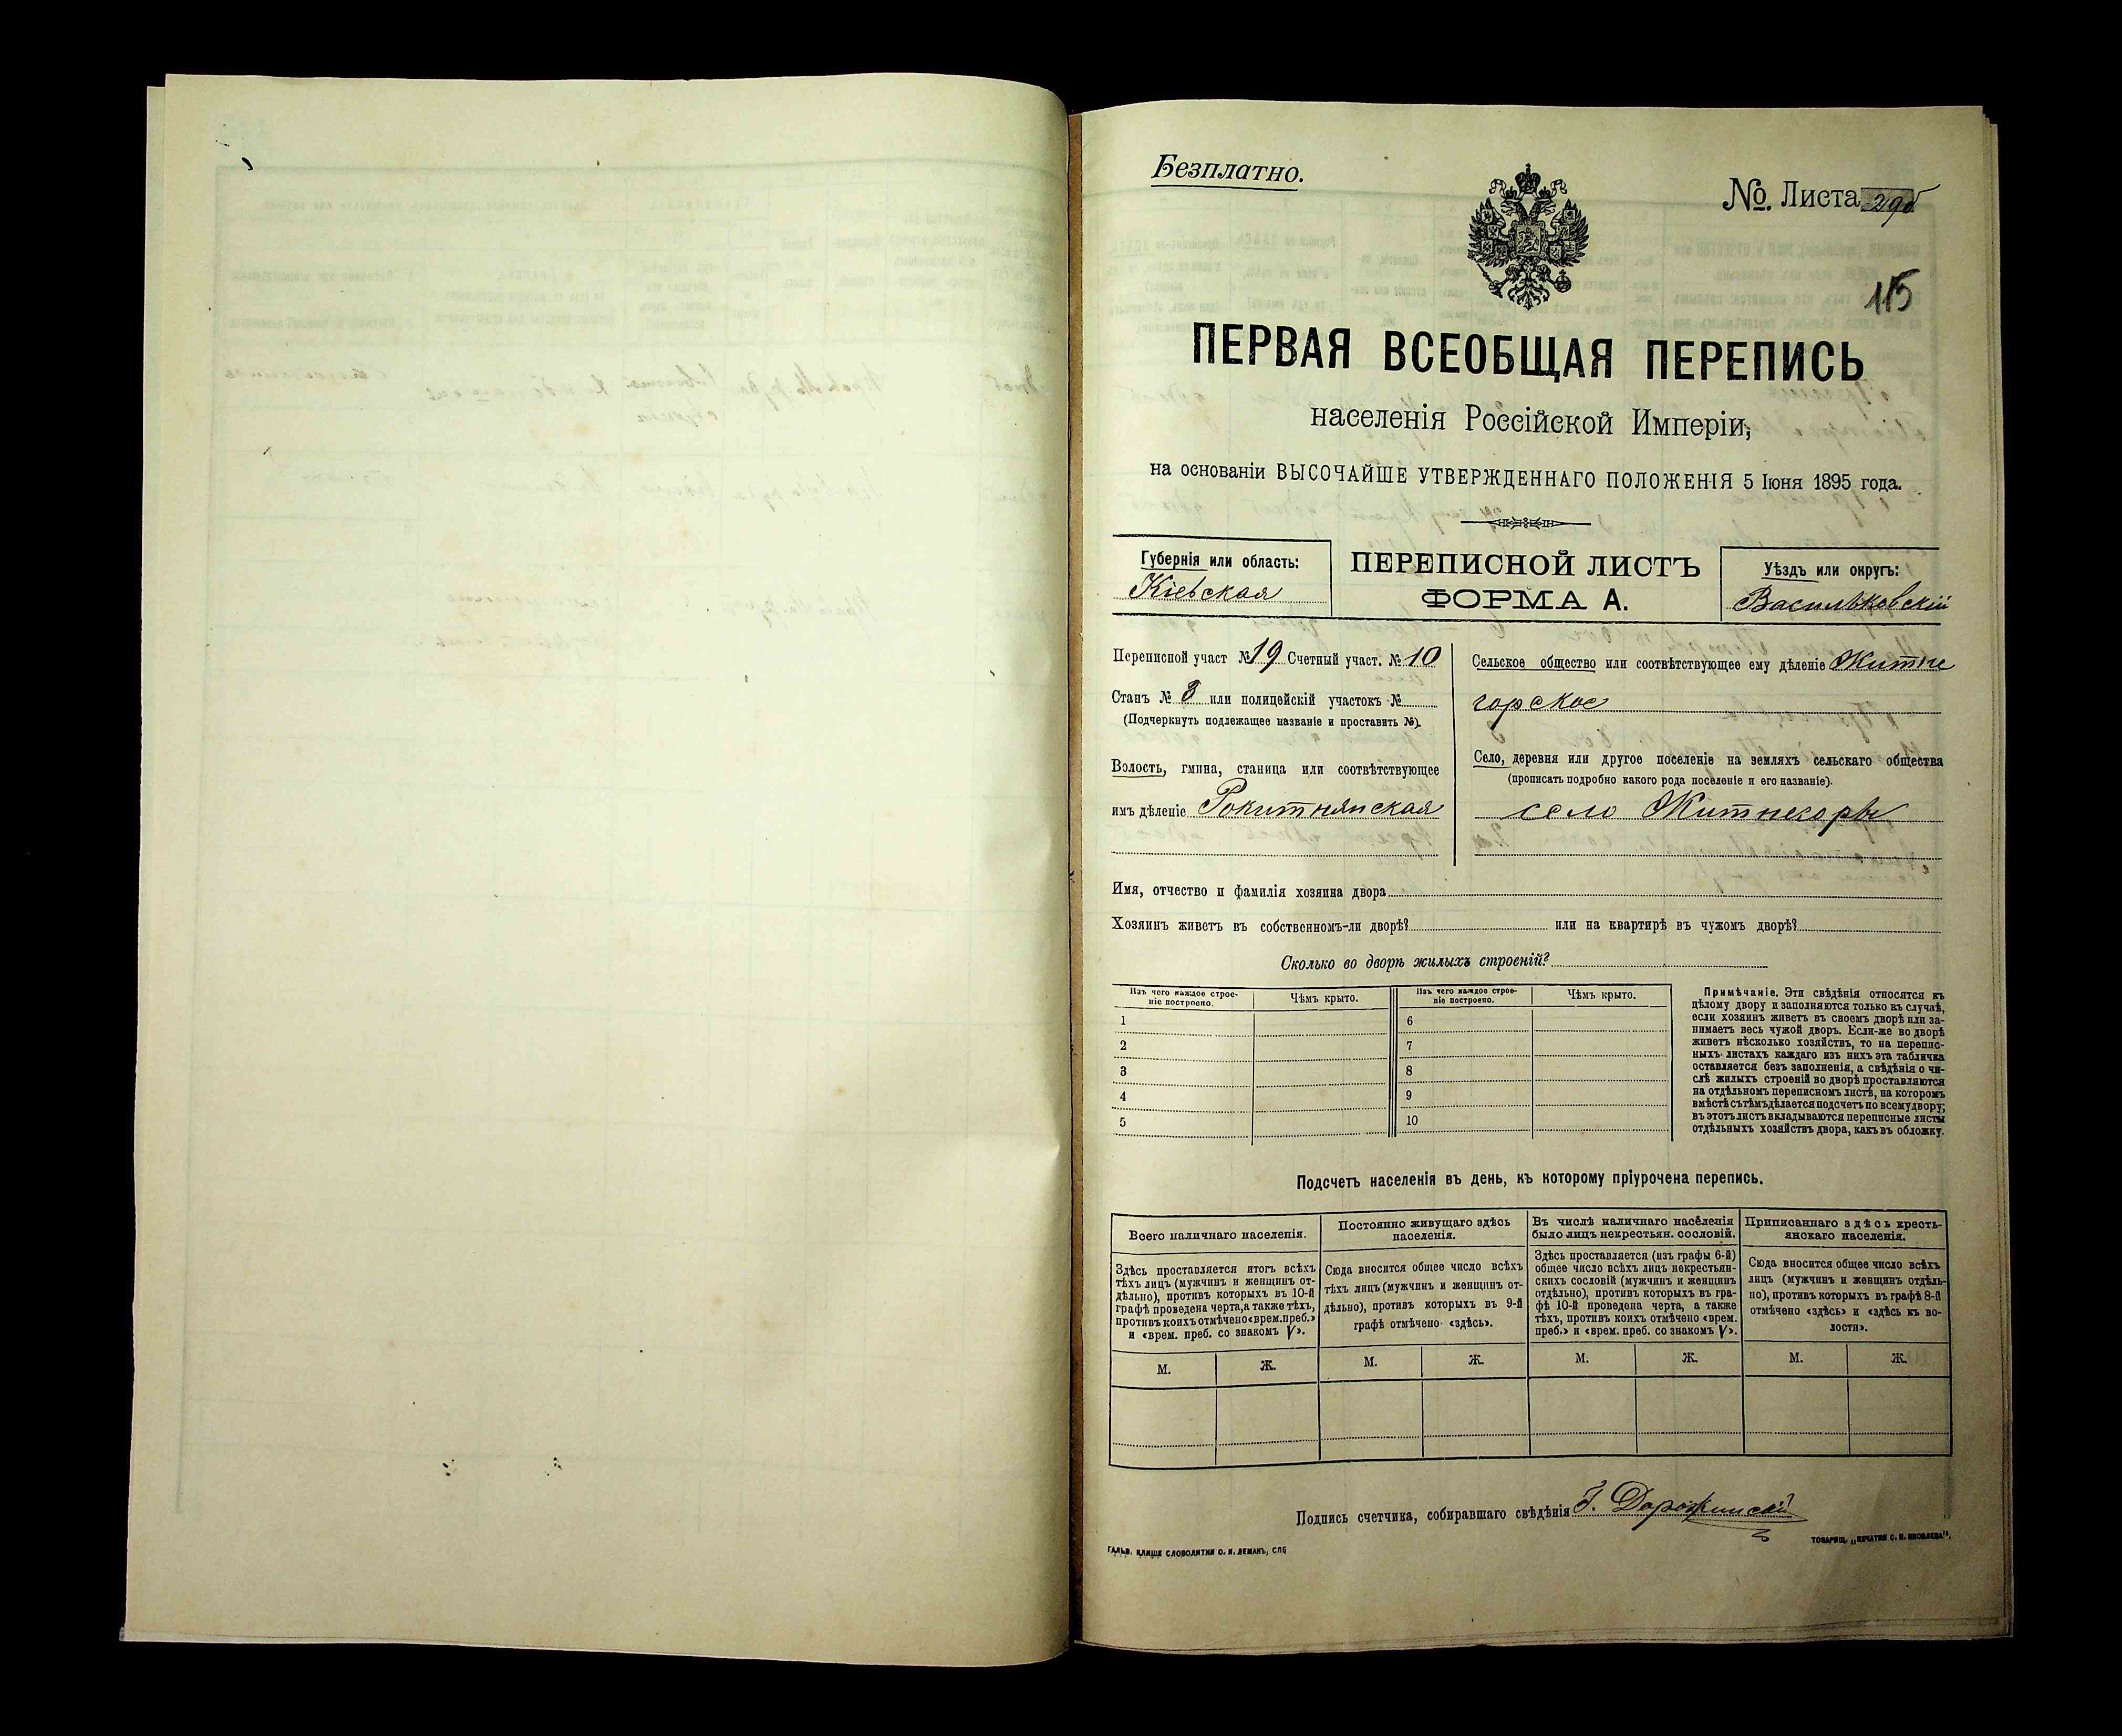 Безплатно.
№. Листа 29б
115
ПЕРВАЯ ВСЕОБЩАЯ ПЕРЕПИСЬ
населенія Россійской Имперіи,
на основаніи ВЫСОЧАЙШЕ УТВЕРЖДЕННАГО ПОЛОЖЕНІЯ 5 Іюня 1895 года.
Губернія или область:
Кіевская
ПЕРЕПИСНОЙ ЛИСТЪ
ФОРМА А.
Уѣздъ или округъ:
Васильковскій
Переписной участ №19 Счетный участ. № 10
Станъ № 3 или полицейскій участокъ №
(Подчеркнуть подлежащее названіе и проставить №).
Волость, гмина, станица или соотвѣтствующее
имъ дѣленіе Рокитнянская
Сельское общество или соотвѣтствующее ему дѣленіе Житне
горское
Село, деревня или другое поселеніе на земляхъ сельскаго общества
(прописать подробно какого рода поселеніе и его названіе).
село Житнегоры
Имя, отчество и фамилія хозяина двора
Хозяинъ живетъ въ собственномъ-ли дворѣ? или на квартирѣ въ чужомъ дворѣ?
Сколько во дворѣ жилыхъ строеній?
Изъ чего каждое строе-
ніе построено.
Чѣмъ крыто.
Изъ чего каждое строе-
ніе построено.
Чѣмъ крыто.
1
2
3
4
5
6
7
8
9
10
Примѣчаніе. Эти свѣдѣнія относятся къ
цѣлому двору и заполняются только въ случаѣ,
если хозяинъ живетъ въ своемъ дворѣ или за-
нимаетъ весь чужой дворъ. Если-же во дворѣ
живетъ нѣсколько хозяйствъ, то на перепис-
ныхъ листахъ каждаго изъ нихъ эта табличка
оставляется безъ заполненія, а свѣдѣнія о чи-
слѣ жилыхъ строеній во дворѣ проставляются
на отдѣльномъ переписномъ листѣ, на которомъ
вмѣстѣ съ тѣмъ дѣлается подсчетъ по всему двору;
въ этотъ листъ вкладываются переписные листы
отдѣльныхъ хозяйствъ двора, какъ въ обложку.
Подсчетъ населенія въ день, къ которому пріурочена перепись.
Всего наличнаго населенія.
Здѣсь проставляется итогъ всѣхъ
тѣхъ лицъ (мужчинъ и женщинъ от-
дѣльно), противъ которыхъ въ 10-й
графѣ проведена черта, а также тѣхъ,
противъ коихъ отмѣчено «врем. преб.»
и «врем. преб. со знакомъ V».
М. Ж.
Постоянно живущаго здѣсь
населенія.
Сюда вносится общее число всѣхъ
тѣхъ лицъ (мужчинъ и женщинъ от-
дѣльно), противъ которыхъ въ 9-й
графѣ отмѣчено «здѣсь».
М. Ж.
Въ числѣ наличнаго населенія
было лицъ некрестьян. сословій.
Здѣсь проставляется (изъ графы 6-й)
общее число всѣхъ лицъ некрестьян-
скихъ сословій (мужчинъ и женщинъ
отдѣльно), противъ которыхъ въ гра-
фѣ 10-й проведена черта, а также
тѣхъ, противъ коихъ отмѣчено «врем.
преб.» и «врем. преб. со знакомъ V».
М. Ж.
Приписаннаго здѣсь кресть-
янскаго населенія.
Сюда вносится общее число всѣхъ
лицъ (мужчинъ и женщинъ отдѣль-
но), противъ которыхъ въ графѣ 8-й
отмѣчено «здѣсь» и «здѣсь въ во-
лости».
М. Ж.
Подпись счетчика, собиравшаго свѣдѣнія Г. Дорожинскій
ГАЛЬВ. КЛИШЕ СЛОВОЛИТНИ О. И. ЛЕМАНЪ, СПБ
ТОВАРИЩ. „ПЕЧАТНЯ С. П. ЯКОВЛЕВА".